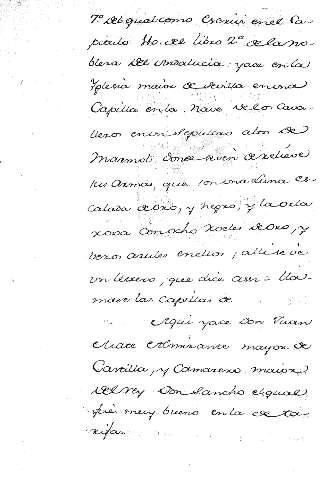 7º del qual como escrivi en el Ca-
pitulo 40. del libro 2º de la no-
bleza del Andalucia: yace en la
Yglesia maior de Sevilla en una
Capilla en la Nave de los Cava-
lleros en un sepulcro alto de
Marmol: donde se ven de relieve
sus Armas, que son una Luna es-
calada de oro, y negro, y la orla
roxa con ocho Roeles de oro, y
veros azules en ellos, alli se ve
un letrero, que dice assi = lla-
mase las Capillas de
Aqui yace Don Juan
Mate Almirante mayor de
Castilla, y Camarero maior
del Rey Don Sancho el qual
fue muy bueno en la de Ta-
rifa.